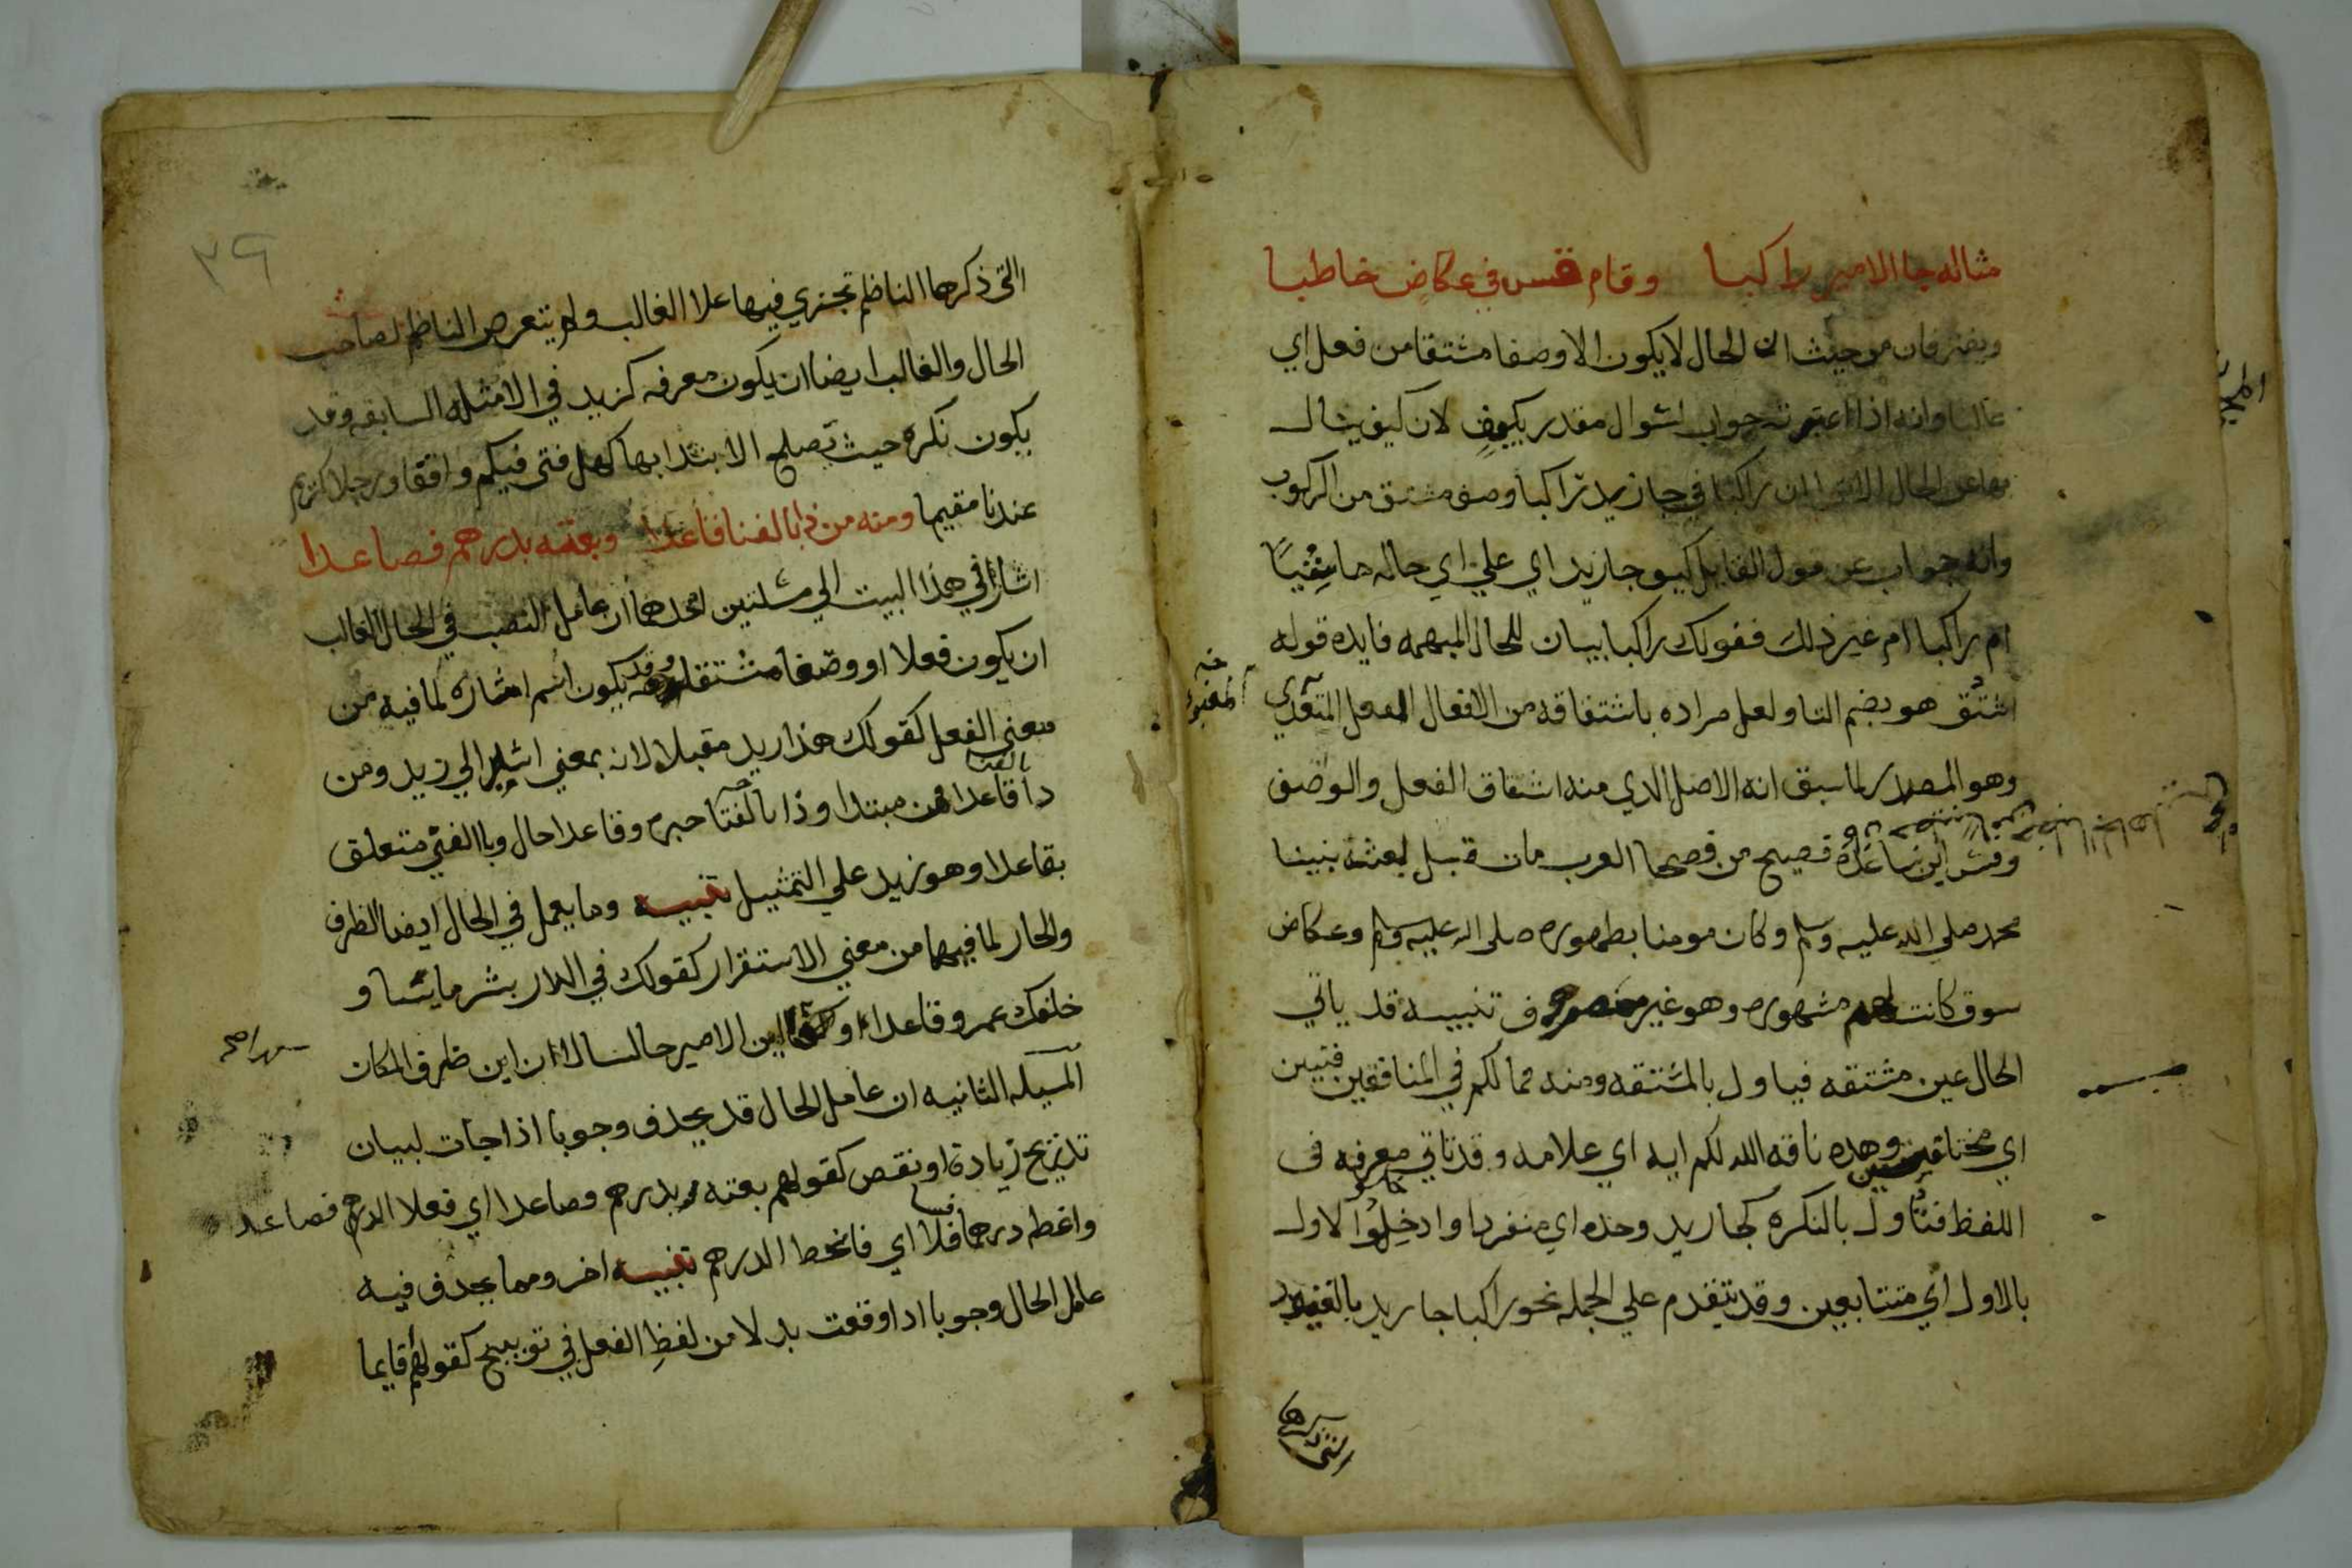 مثاله جا الامير راكبا وقام قس في عكاض خاطبا
ويفترقان من حيث ان الحال لا يكون الا وصفا مشتقا من فعل اي
غالبا وانه اذا اعتبرته جواب اسوال مقدر بكيف لان كيف يسال
بها عن الحال الا ترا ان راكبا في جا زيد راكبا وصف مشتق من الركوب
وانه جواب عن قول القايل كيف جا زيد اي علي اي حاله ماشيًا
ام راكبا ام غير ذلك فقولك راكبا بيان للحال المبهمه فايده قوله
اشتق هو بضم التا ولعل مراده باشتقاقه من الافعال الفعل المتعدي
وهو المصدر لما سبق انه الاصل الدي منه اشتقاق الفعل والوصف
وقس ابن ساعدة فصيح من فصحا العرب مات قبل بعثة نبينا
محمد صلي الله عليه وسلم وكان مومنا بظهوره صلى الله عليه وسلم وعكاض
سوق كانت لهم مشهوره وهو غير منصرف تنبيه قد ياتي
الحال عين مشتقه فياول بالمشتقه ومنه فما لكم في المنافقين فئتين
اي مختلفين وهذه ناقه الله لكم ايه اي علامه وقد تاتي معرفه في
اللفظ فتأول بالنكره كجا زيد وحده اي منفردا وادخلوا الاول
بالاول اي متتابعين وقد يتقدم علي الجمله نحو راكبا جا زيد بالقيود
التي ذكرها
٣٩
التي ذكرها الناظم تجري فيها علا الغالب ولم يتعرض الناظم لصاحب
الحال والغالب ايضا ان يكون معرفه كزيد في الامثله السابقه وقد
يكون نكره حيث تصلح الابتدا بها كهل فتى فيكم وافقا ورجلا كريم
عندنا مقيما ومنه من ذا بالفنا قاعدا وبعته بدرهم فصاعدا
اشار في هذا البيت الي مسلتين احدهما ان عامل النصب في الحال الغالب
ان يكون فعلا او وصفا مشتقا وقد يكون اسم اشاره لما فيه من
معني الفعل كقولك هذا زيد مقبلا لانه بمعني اشير الي زيد ومن
ذا بالفنا قاعدا فمن مبتدا وذا بالفنا خبره وقاعدا حال وبالفني متعلق
بقاعدا وهو زيد علي التمثيل تنبيه وما يعمل في الحال ايضا الظرف
والجار لما فيهما من معني الاستقرار كقولك في الدار بشر ماشيا و
خلفك عمرو قاعدا او اين الامير جالسا لان اين ظرف المكان
المسيله الثانيه ان عامل الحال قد يحذف وجوبا اذا جات لبيان
تدريج زيادة او نقص كقولهم بعته بدرهم وصاعدا اي فعلا الدرهم فصاعد
واغطه درهما فسافلا اي فانحط الدرهم تنبيه اخر ومما يحذف فيه
عامل الحال وجوبا اذا وقعت بدلا من لفظ الفعل في توبيخ كقولهم قايما